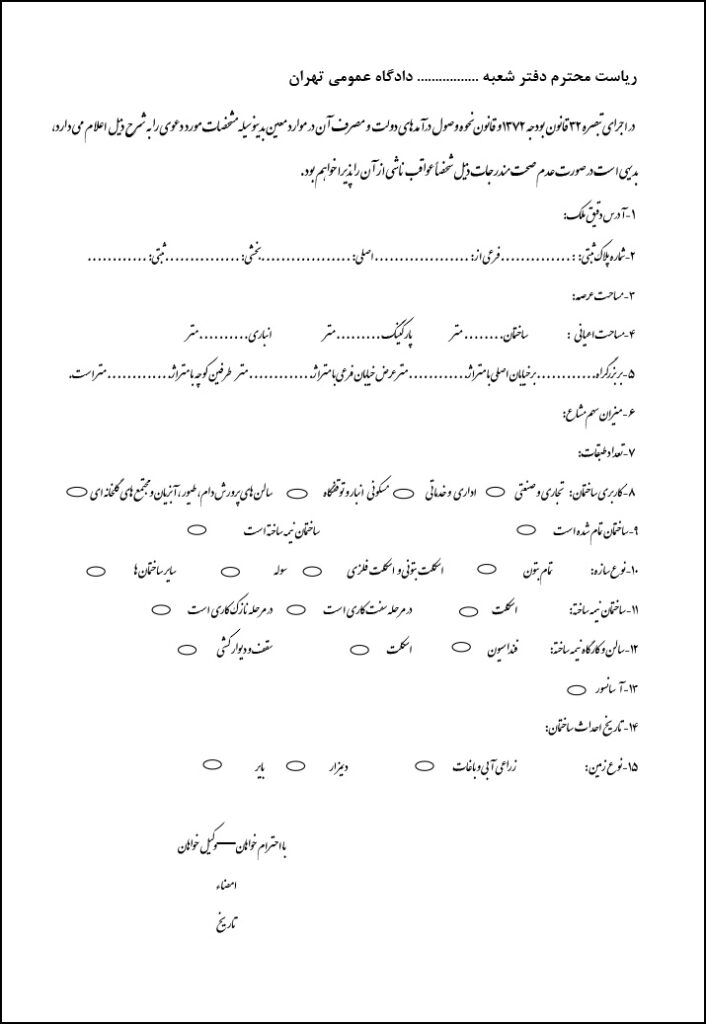 ریاست محترم دفتر شعبه ................. دادگاه عمومی تهران
در اجرای تبصره ۳۲ قانون بودجه ۱۳۷۲ و قانون نحوه وصول درآمدهای دولت و مصرف آن در موارد معین بدینوسیله مشخصات مورد دعوی را به شرح ذیل اعلام می دارد،
بدیهی است در صورت عدم صحت مندرجات ذیل شخصاً عواقب ناشی از آن را پذیرا خواهم بود.
۱-آدرس دقیق ملک:
۲-شماره پلاک ثبتی: : .............. فرعی از: ................... اصلی: .................. بخشی: ............... ثبتی: ............
۳-مساحت عرصه:
۴-مساحت اعیانی : ساختمان........ متر پارکینگ......... متر انباری.......... متر
۵-بر بزرگراه............ بر خیابان اصلی با متراژ........... متر عرض خیابان فرعی با متراژ............ متر طرفین کوچه با متراژ............ متر است.
۶-میزان سهم مشاع:
۷-تعداد طبقات:
۸-کاربری ساختمان: تجاری و صنعتی اداری و خدماتی مسکونی انبار و توقفگاه سالن های پرورش دام، طیور، آبزیان و مجتمع های گلخانه ای
۹-ساختمان تمام شده است ساختمان نیمه ساخته است
۱۰-نوع سازه: تمام بتون اسکلت بتونی و اسکلت فلزی سوله سایر ساختمان ها
۱۱-ساختمان نیمه ساخته: اسکلت در مرحله سفت کاری است در مرحله نازک کاری است
۱۲-سالن و کارگاه نیمه ساخته: فنداسیون اسکلت سقف و دیوار کشی
۱۳-آسانسور
۱۴-تاریخ احداث ساختمان:
۱۵-نوع زمین: زراعی آبی و باغات دیمزار بایر
با احترام خواهان—وکیل خواهان
امضاء
تاریخ